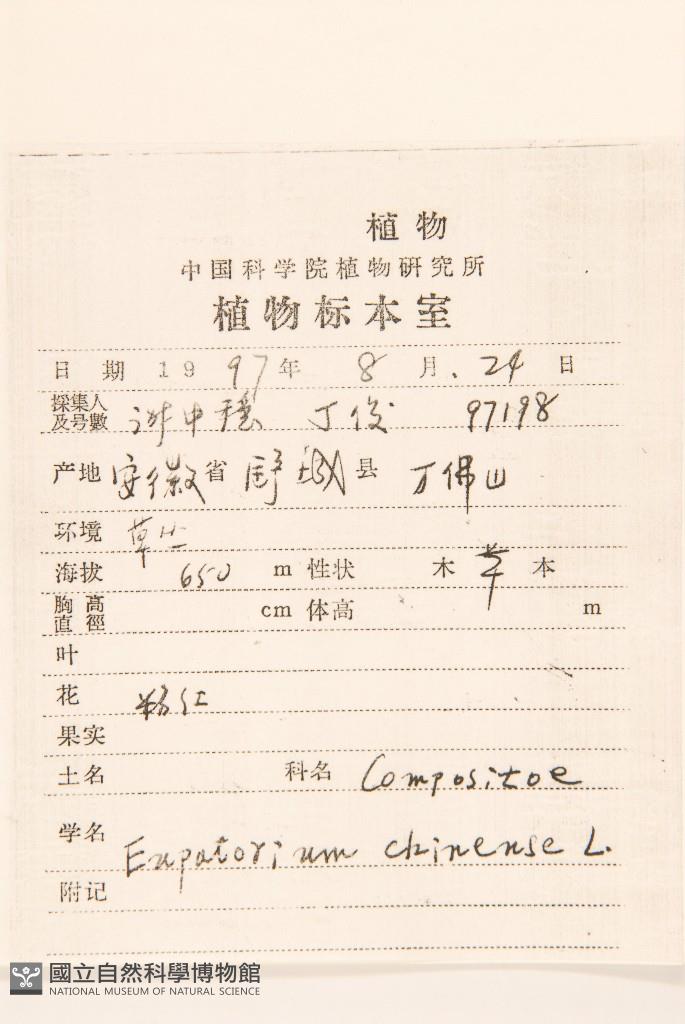 植物
中国科学院植物研究所
植物标本室
日 期 1997年 8月.24日
採集人及号數 丁俊 97198
产地 安徽省 舒城县 万佛山
环境 草丛
海拔 650 m 性状 木 草 本
胸高直徑 cm 体高 m
叶
花 粉红
果实
土名 科名 Compositae
学名 Eupatorium chinense L.
附记
國立自然科學博物館
NATIONAL MUSEUM OF NATURAL SCIENCE